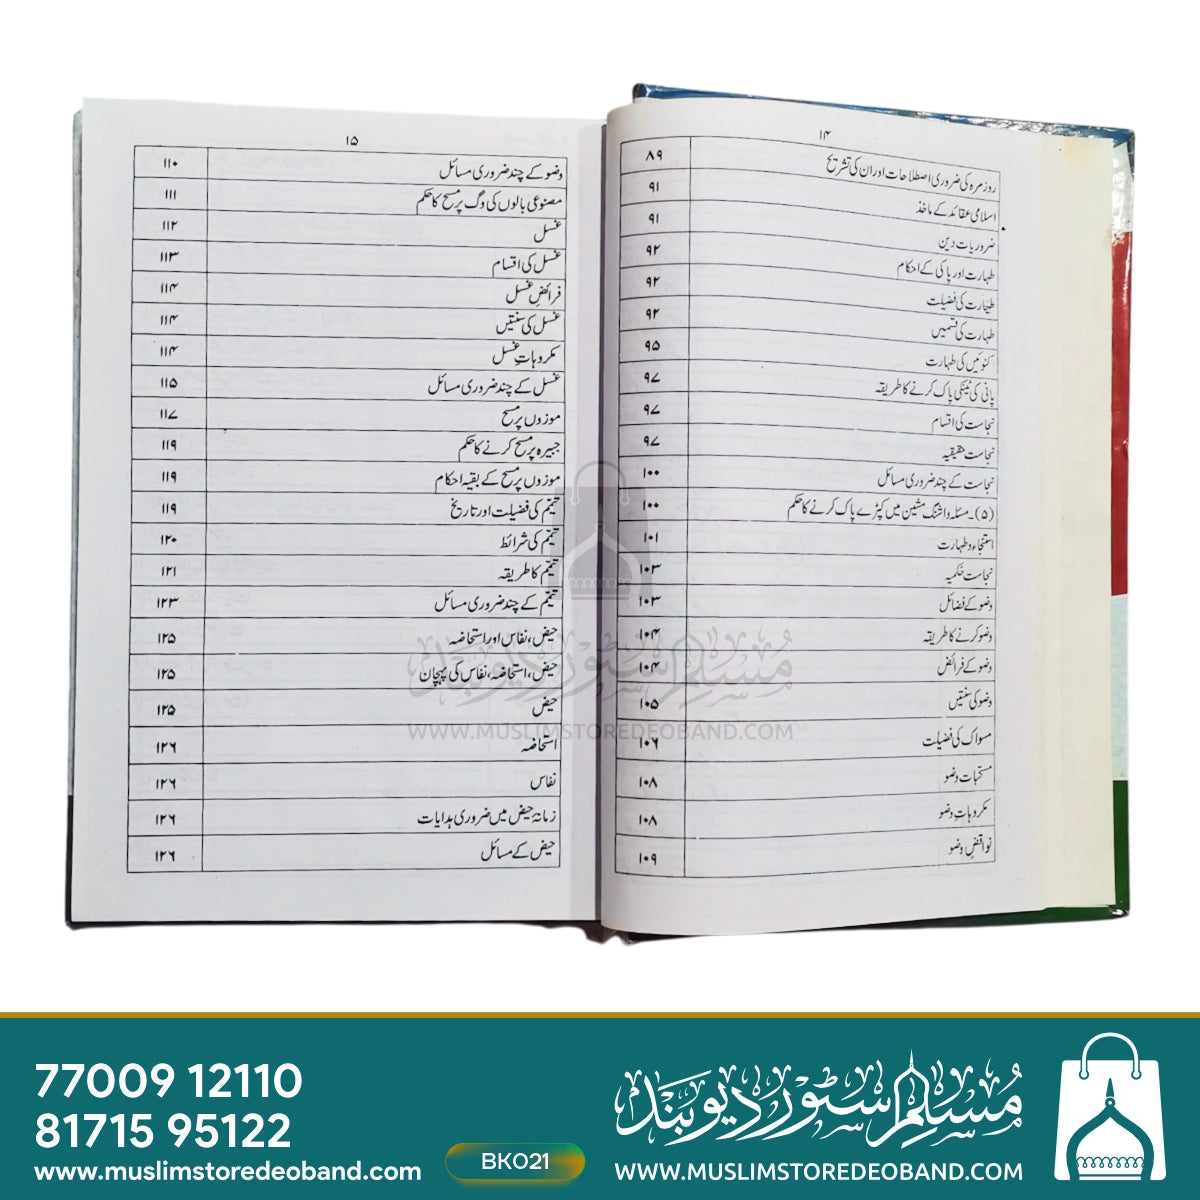 ۱۴
روزمرہ کی ضروری اصطلاحات اور ان کی تشریح ۸۹
اسلامی عقائد کے ماخذ ۹۱
ضروریات دین ۹۱
طہارت اور پاکی کے احکام ۹۲
طہارت کی فضیلت ۹۲
طہارت کی قسمیں ۹۲
کنوئیں کی طہارت ۹۵
پانی کی ٹینکی پاک کرنے کا طریقہ ۹۷
نجاست کی اقسام ۹۷
نجاست حقیقیہ ۹۷
نجاست کے چند ضروری مسائل ۱۰۰
(۵)۔ مسئلہ واشنگ مشین میں کپڑے پاک کرنے کا حکم ۱۰۰
استنجاء و طہارت ۱۰۱
نجاست حکمیہ ۱۰۳
وضو کے فضائل ۱۰۳
وضو کرنے کا طریقہ ۱۰۴
وضو کے فرائض ۱۰۴
وضو کی سنتیں ۱۰۵
مسواک کی فضیلت ۱۰۶
مستحبات وضو ۱۰۸
مکروہاتِ وضو ۱۰۸
نواقضِ وضو ۱۰۹
۱۵
وضو کے چند ضروری مسائل ۱۱۰
مصنوعی بالوں کی وگ پر مسح کا حکم ۱۱۱
غسل ۱۱۲
غسل کی اقسام ۱۱۳
فرائضِ غسل ۱۱۴
غسل کی سنتیں ۱۱۴
مکروہاتِ غسل ۱۱۴
غسل کے چند ضروری مسائل ۱۱۵
موزوں پر مسح ۱۱۷
جبیرہ پر مسح کرنے کا حکم ۱۱۹
موزوں پر مسح کے بقیہ احکام ۱۱۹
تیمّم کی فضیلت اور تاریخ ۱۱۹
تیمّم کی شرائط ۱۲۰
تیمّم کا طریقہ ۱۲۱
تیمّم کے چند ضروری مسائل ۱۲۳
حیض، نفاس اور استحاضہ ۱۲۵
حیض، استحاضہ، نفاس کی پہچان ۱۲۵
حیض ۱۲۵
استحاضہ ۱۲۶
نفاس ۱۲۶
زمانۂ حیض میں ضروری ہدایات ۱۲۶
حیض کے مسائل ۱۲۶
مسلم سٹور دیوبند
WWW.MUSLIMSTOREDEOBAND.COM
77009 12110
81715 95122
www.muslimstoredeoband.com
BK021
مسلم سٹور دیوبند
WWW.MUSLIMSTOREDEOBAND.COM